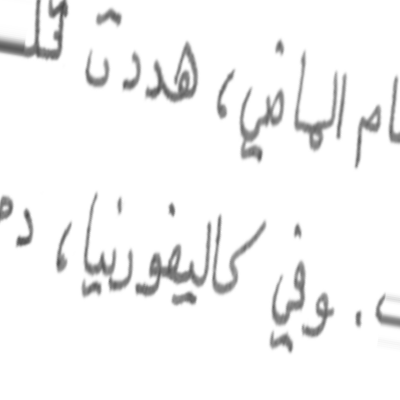 ام الماضي، هددت
. وفي كاليفورنيا،